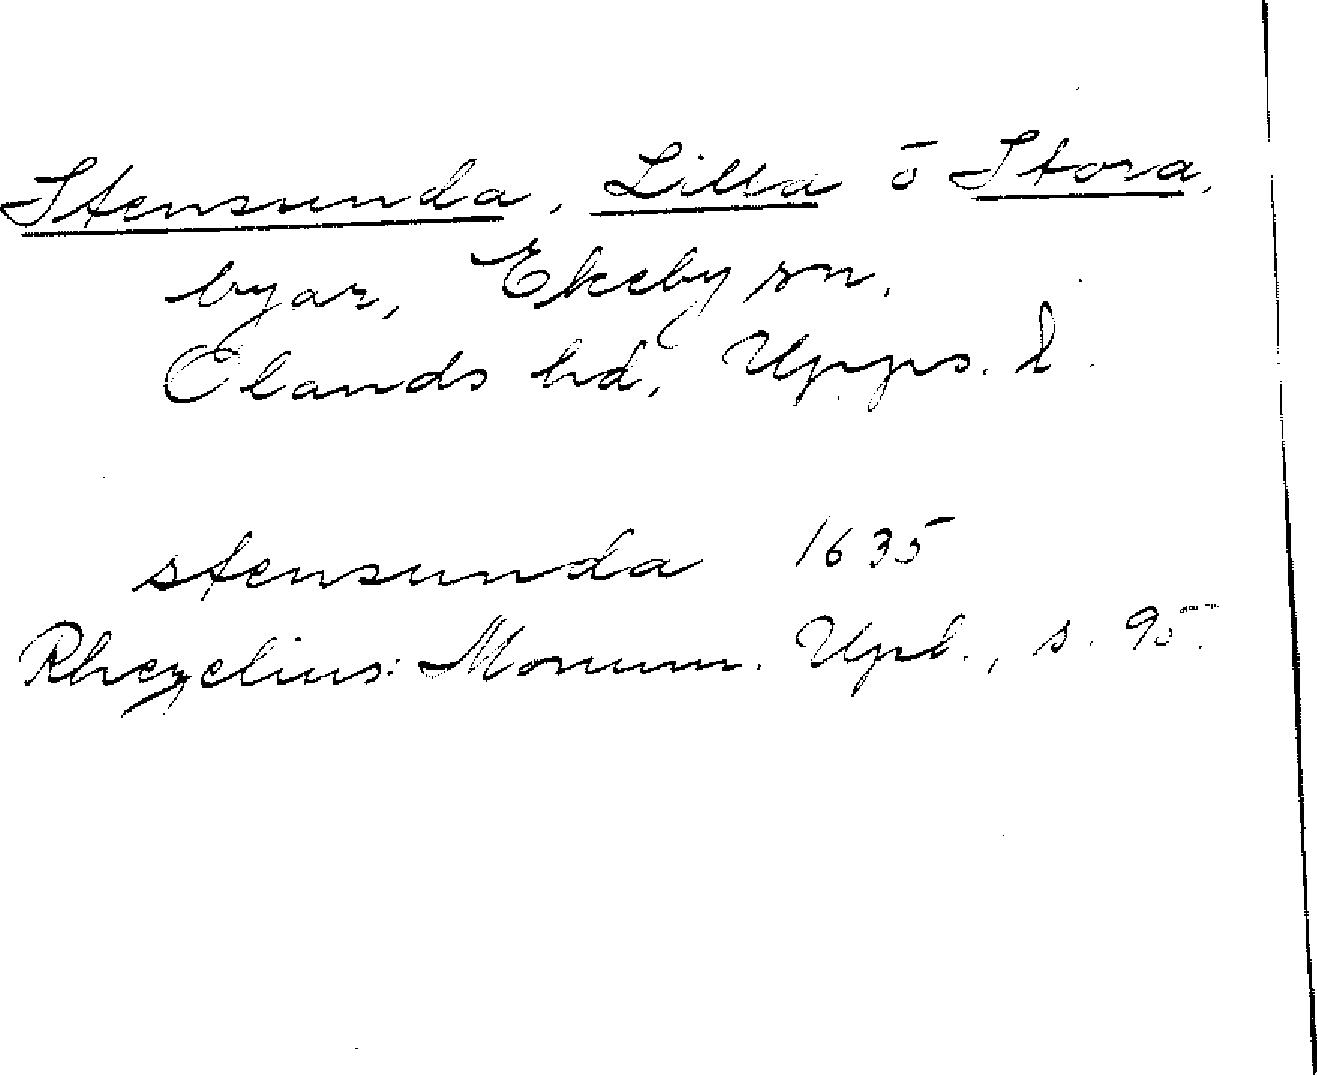 Stensunda, Lilla o Stora,
byar, Ekeby sn,
Olands hd, Upps. l.
stensunda 1635
Rhezelius: Monum. Upl., s. 95.